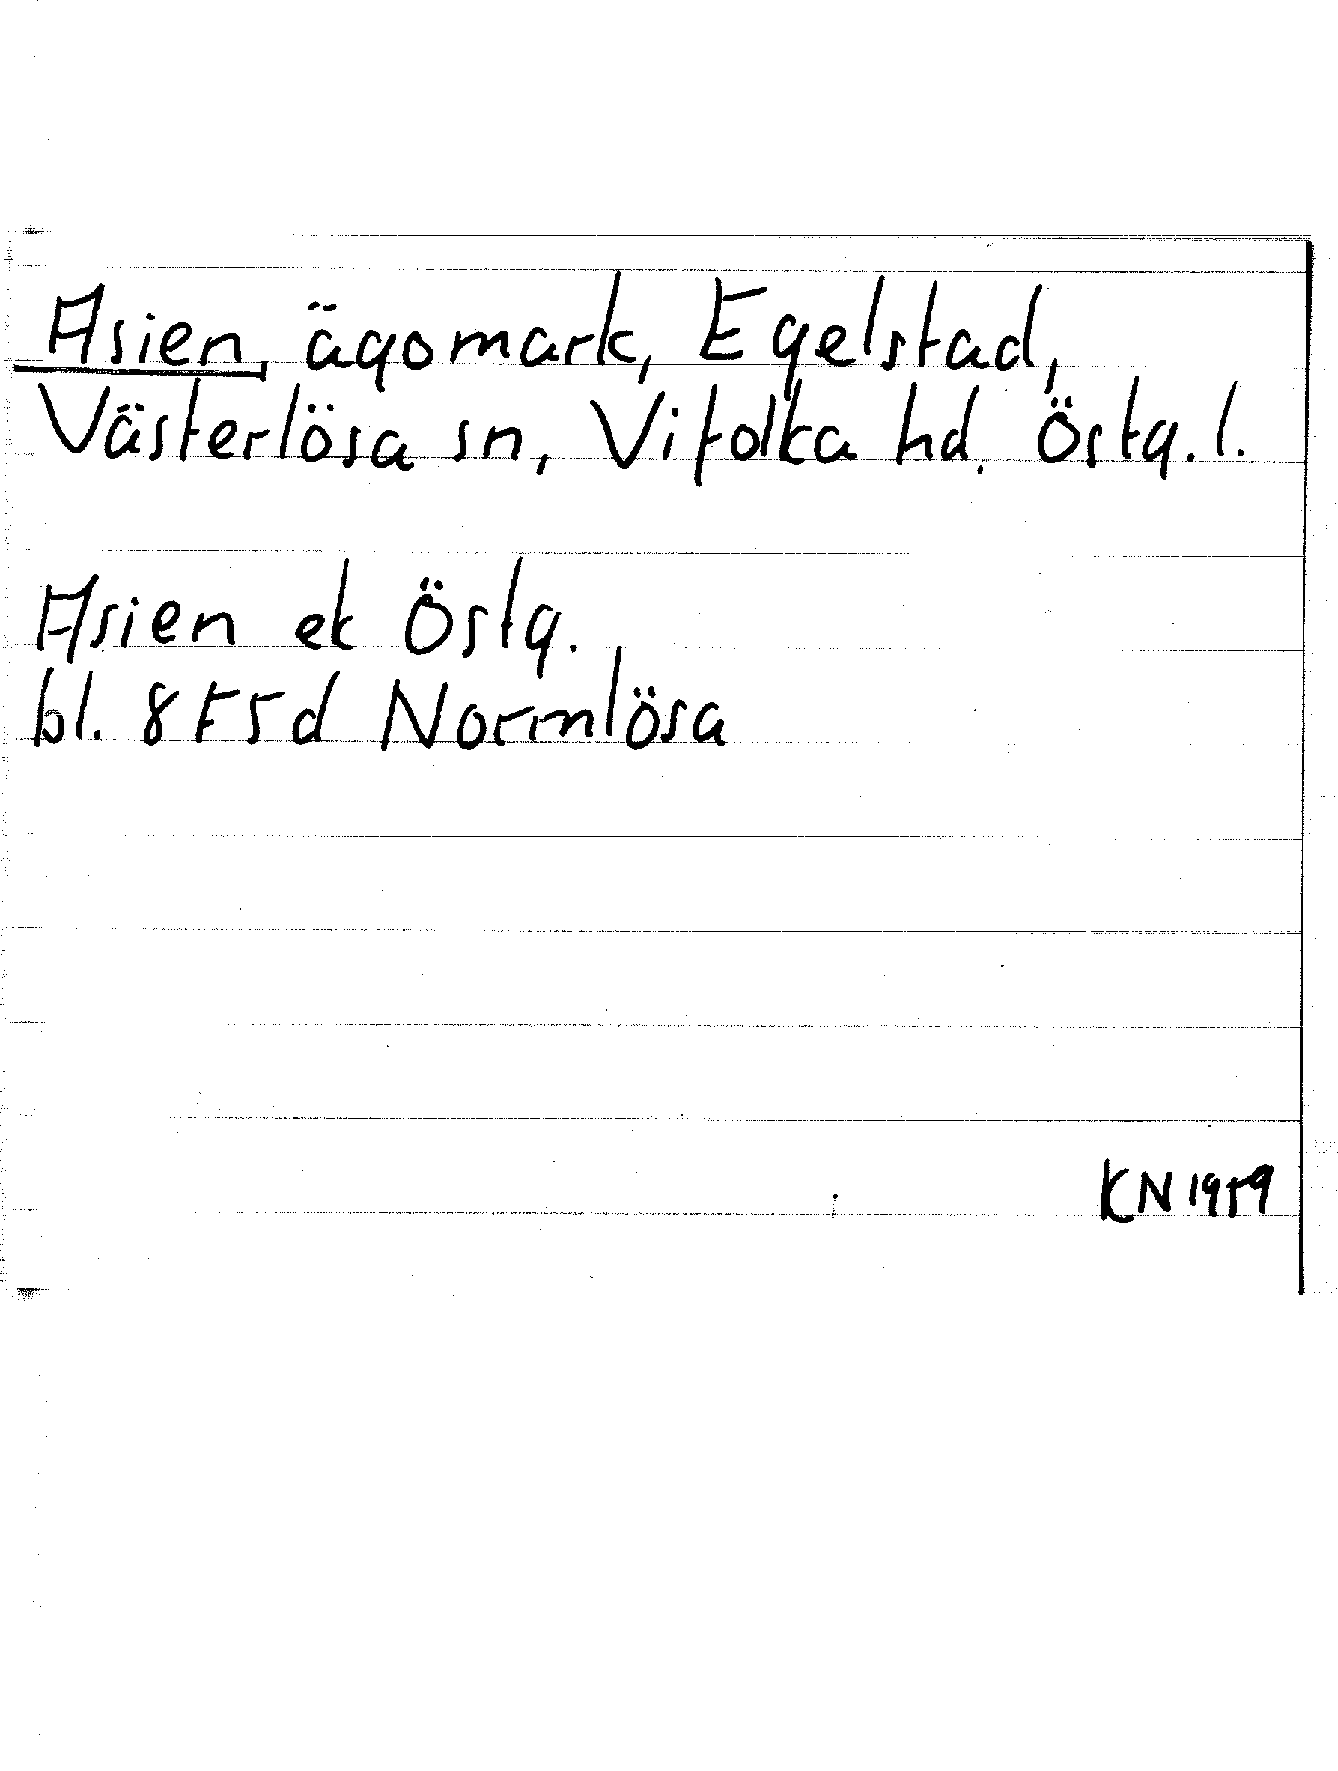 Asien, ägomark, Egelstad,
Västerlösa sn, Vifolka hd. Östg. l.
Asien ek Östg.
bl. 8F5d Normlösa
KN 1959